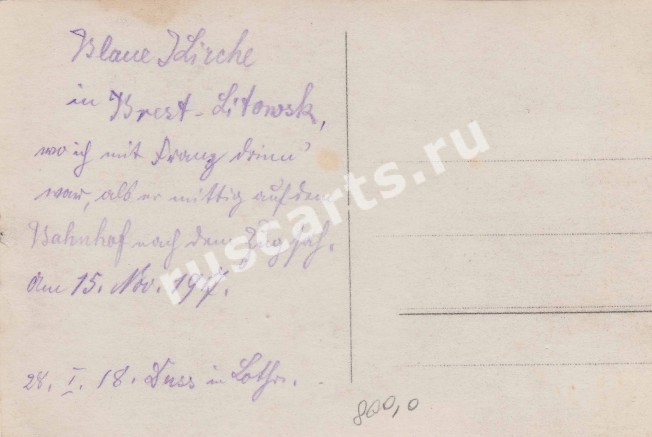 Blaue Kirche
in Brest-Litowsk,
wo ich mit Franz drinn
war, als er mittig auf dem
Bahnhof nach dem Zug sah.
Am 15. Nov. 1917.
28. I. 18. Duss in Lothr.
800,0
ruscarts.ru